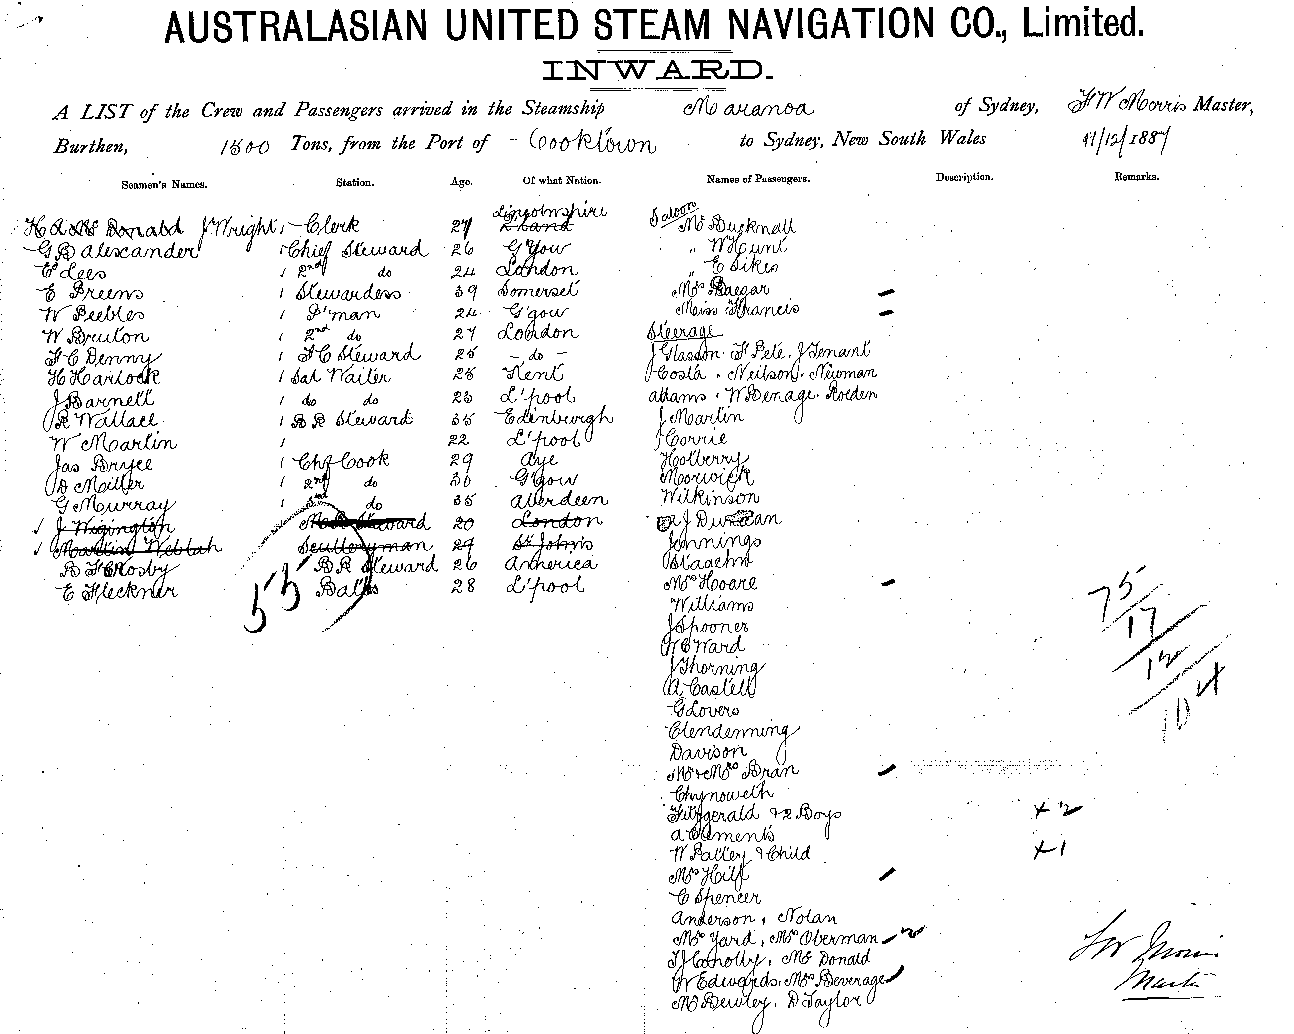 AUSTRALASIAN UNITED STEAM NAVIGATION CO., Limited.
INWARD.
A LIST of the Crew and Passengers arrived in the Steamship Maranoa of Sydney, F W Morris Master,
Burthen, 1500 Tons, from the Port of Cooktown to Sydney, New South Wales 11/12/1887
Seamen's Names. Station. Age. Of what Nation. Names of Passengers. Description. Remarks.
Lincolnshire Saloon
H A Mc Donald J Wright Clerk 27 Mr Bucknall
G B Alexander 1 Chief Steward 26 G'gow " W Hunt
E Lees 1 2nd do 24 London " E Sikes
E Freems 1 Stewardess 39 Somerset Mrs
W Peebles 1 P'man 24 G'gow Miss Francis
W Bruton 1 2nd do 27 London Steerage
F C Denny 1 F C Steward 25 - do - J Glasson. F Pete. J Tenant
H Harlock 1 Sal Waiter 28 Kent Costa. Neilson. Newman
J Barnell 1 do do 23 L'pool Adams. W Benage. Roeden
R Wallace 1 B R Steward 35 Edinburgh J Martin
W Martin 1 22 L'pool J Corrie
Jas Bryce 1 Chf Cook 29 Aye Holberry
D Miller 1 2nd do 30 G'gow Morwick
G Murray 1 3rd do 35 Aberdeen Wilkinson
J Wigington Steward 20 London A J Duncan
Martin Weblah Sculleryman 29 St Johns Jennings
B F Crosby B R Steward 26 America
E Fleckner 28 L'pool Mrs Hoare
55
Williams
J Spooner
W E Ward
J Thorning
A Castell
G Lovers
Clendenning
Davison
Mr & Mrs Bran
Chynoweth
Fitzgerald & 2 Boys +2
A Clements
W Palley & Child +1
Mrs Hill
C Spencer
Anderson, Nolan
Mrs Yard, Mrs Oberman 2
T J Conolly, Mc Donald
W Edwards, Mrs Beverage
Mr Bewley, D Taylor
75
17
12
104
F W Morris
Master